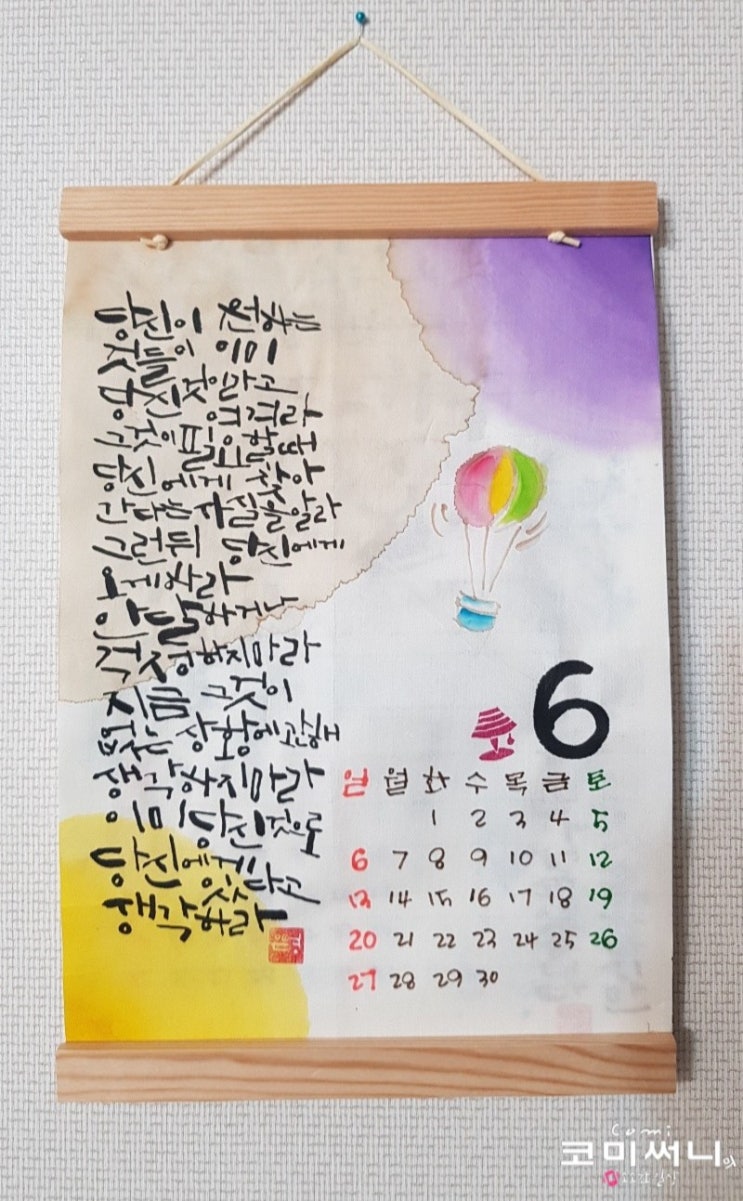 당신이 원하는
것들이 이미
당신것이라고
여겨라
그것이 필요할때
당신에게 찾아
간다는 사실을 알라
그런뒤 당신에게
오게하라
안달하거나
걱정하지마라
지금 그것이
없는 상황에 관해
생각하지마라
이미 당신것으로
당신에게 있다고
생각하라
6
일 월 화 수 목 금 토
1 2 3 4 5
6 7 8 9 10 11 12
13 14 15 16 17 18 19
20 21 22 23 24 25 26
27 28 29 30
Comi
코미써니의